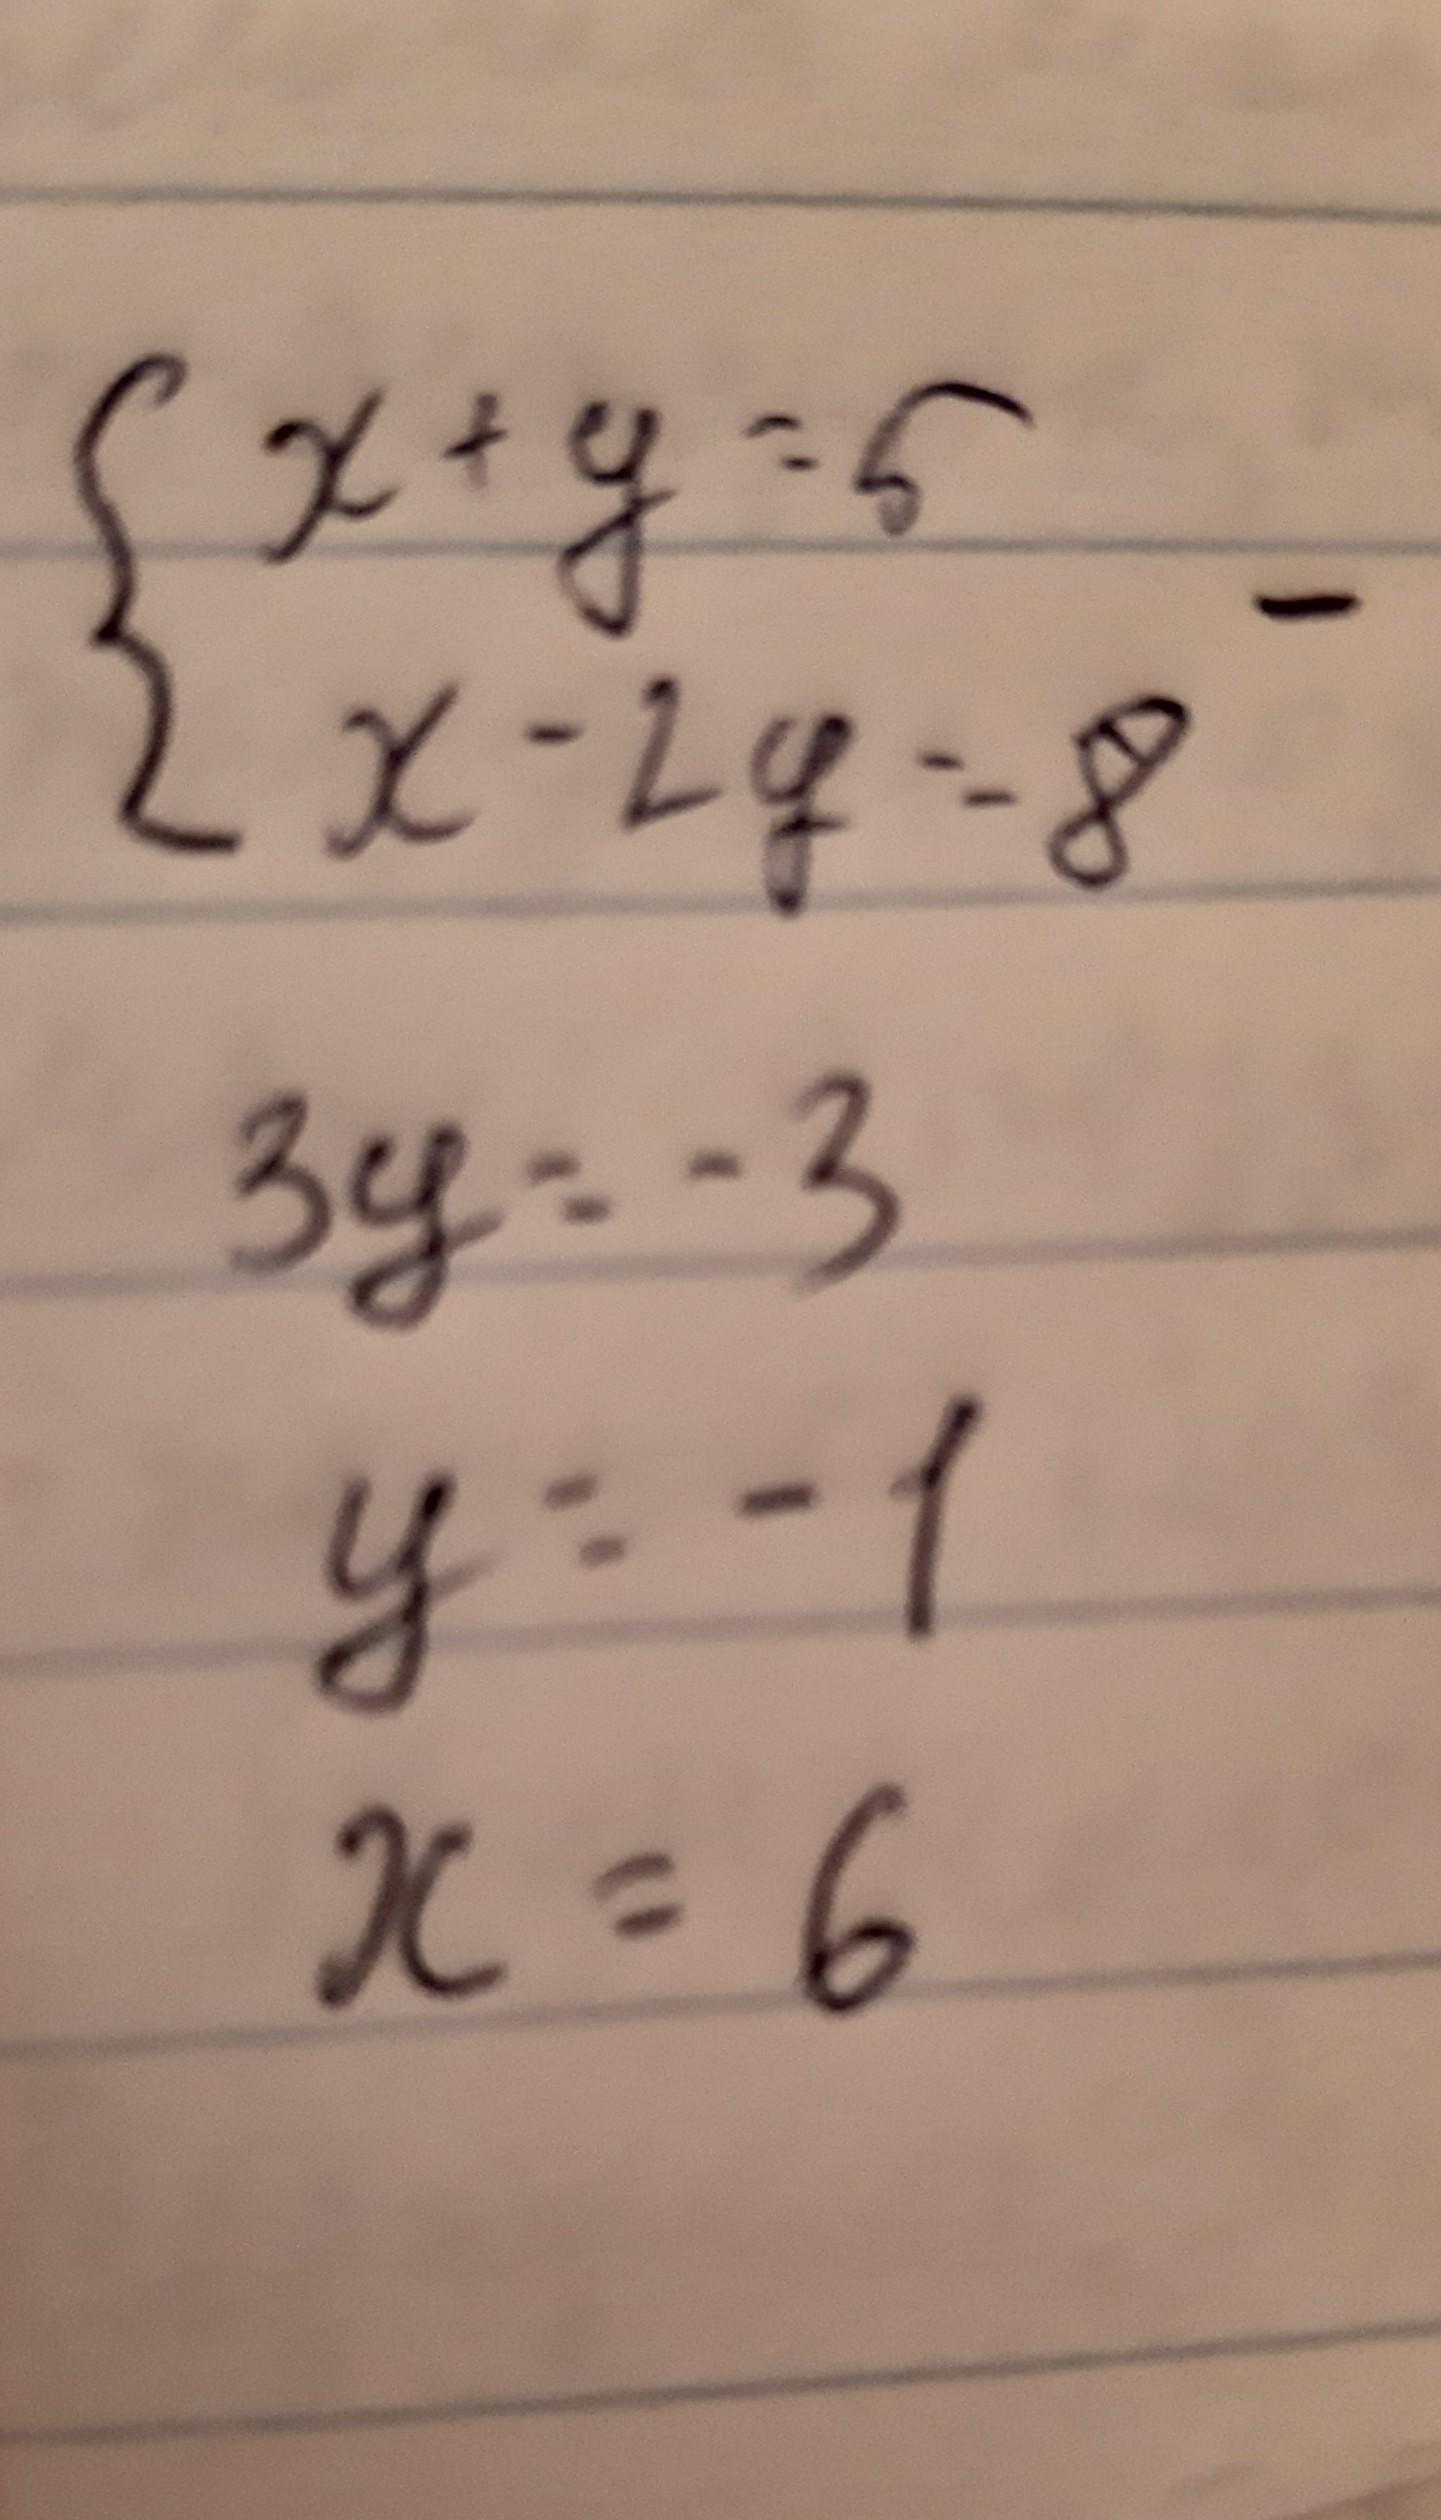 { x + y = 5
x - 2y = 8 -
3y = - 3
y = - 1
x = 6